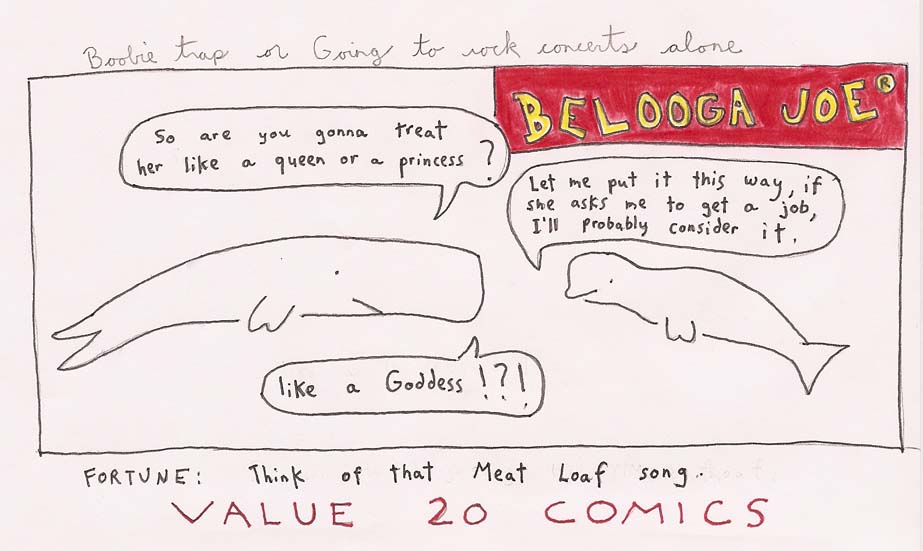 Boobie trap or Going to rock concerts alone
BELOOGA JOE®
So are you gonna treat
her like a queen or a princess?
Let me put it this way, if
she asks me to get a job,
I'll probably consider it.
like a Goddess!?!
FORTUNE: Think of that Meat Loaf song.
VALUE 20 COMICS